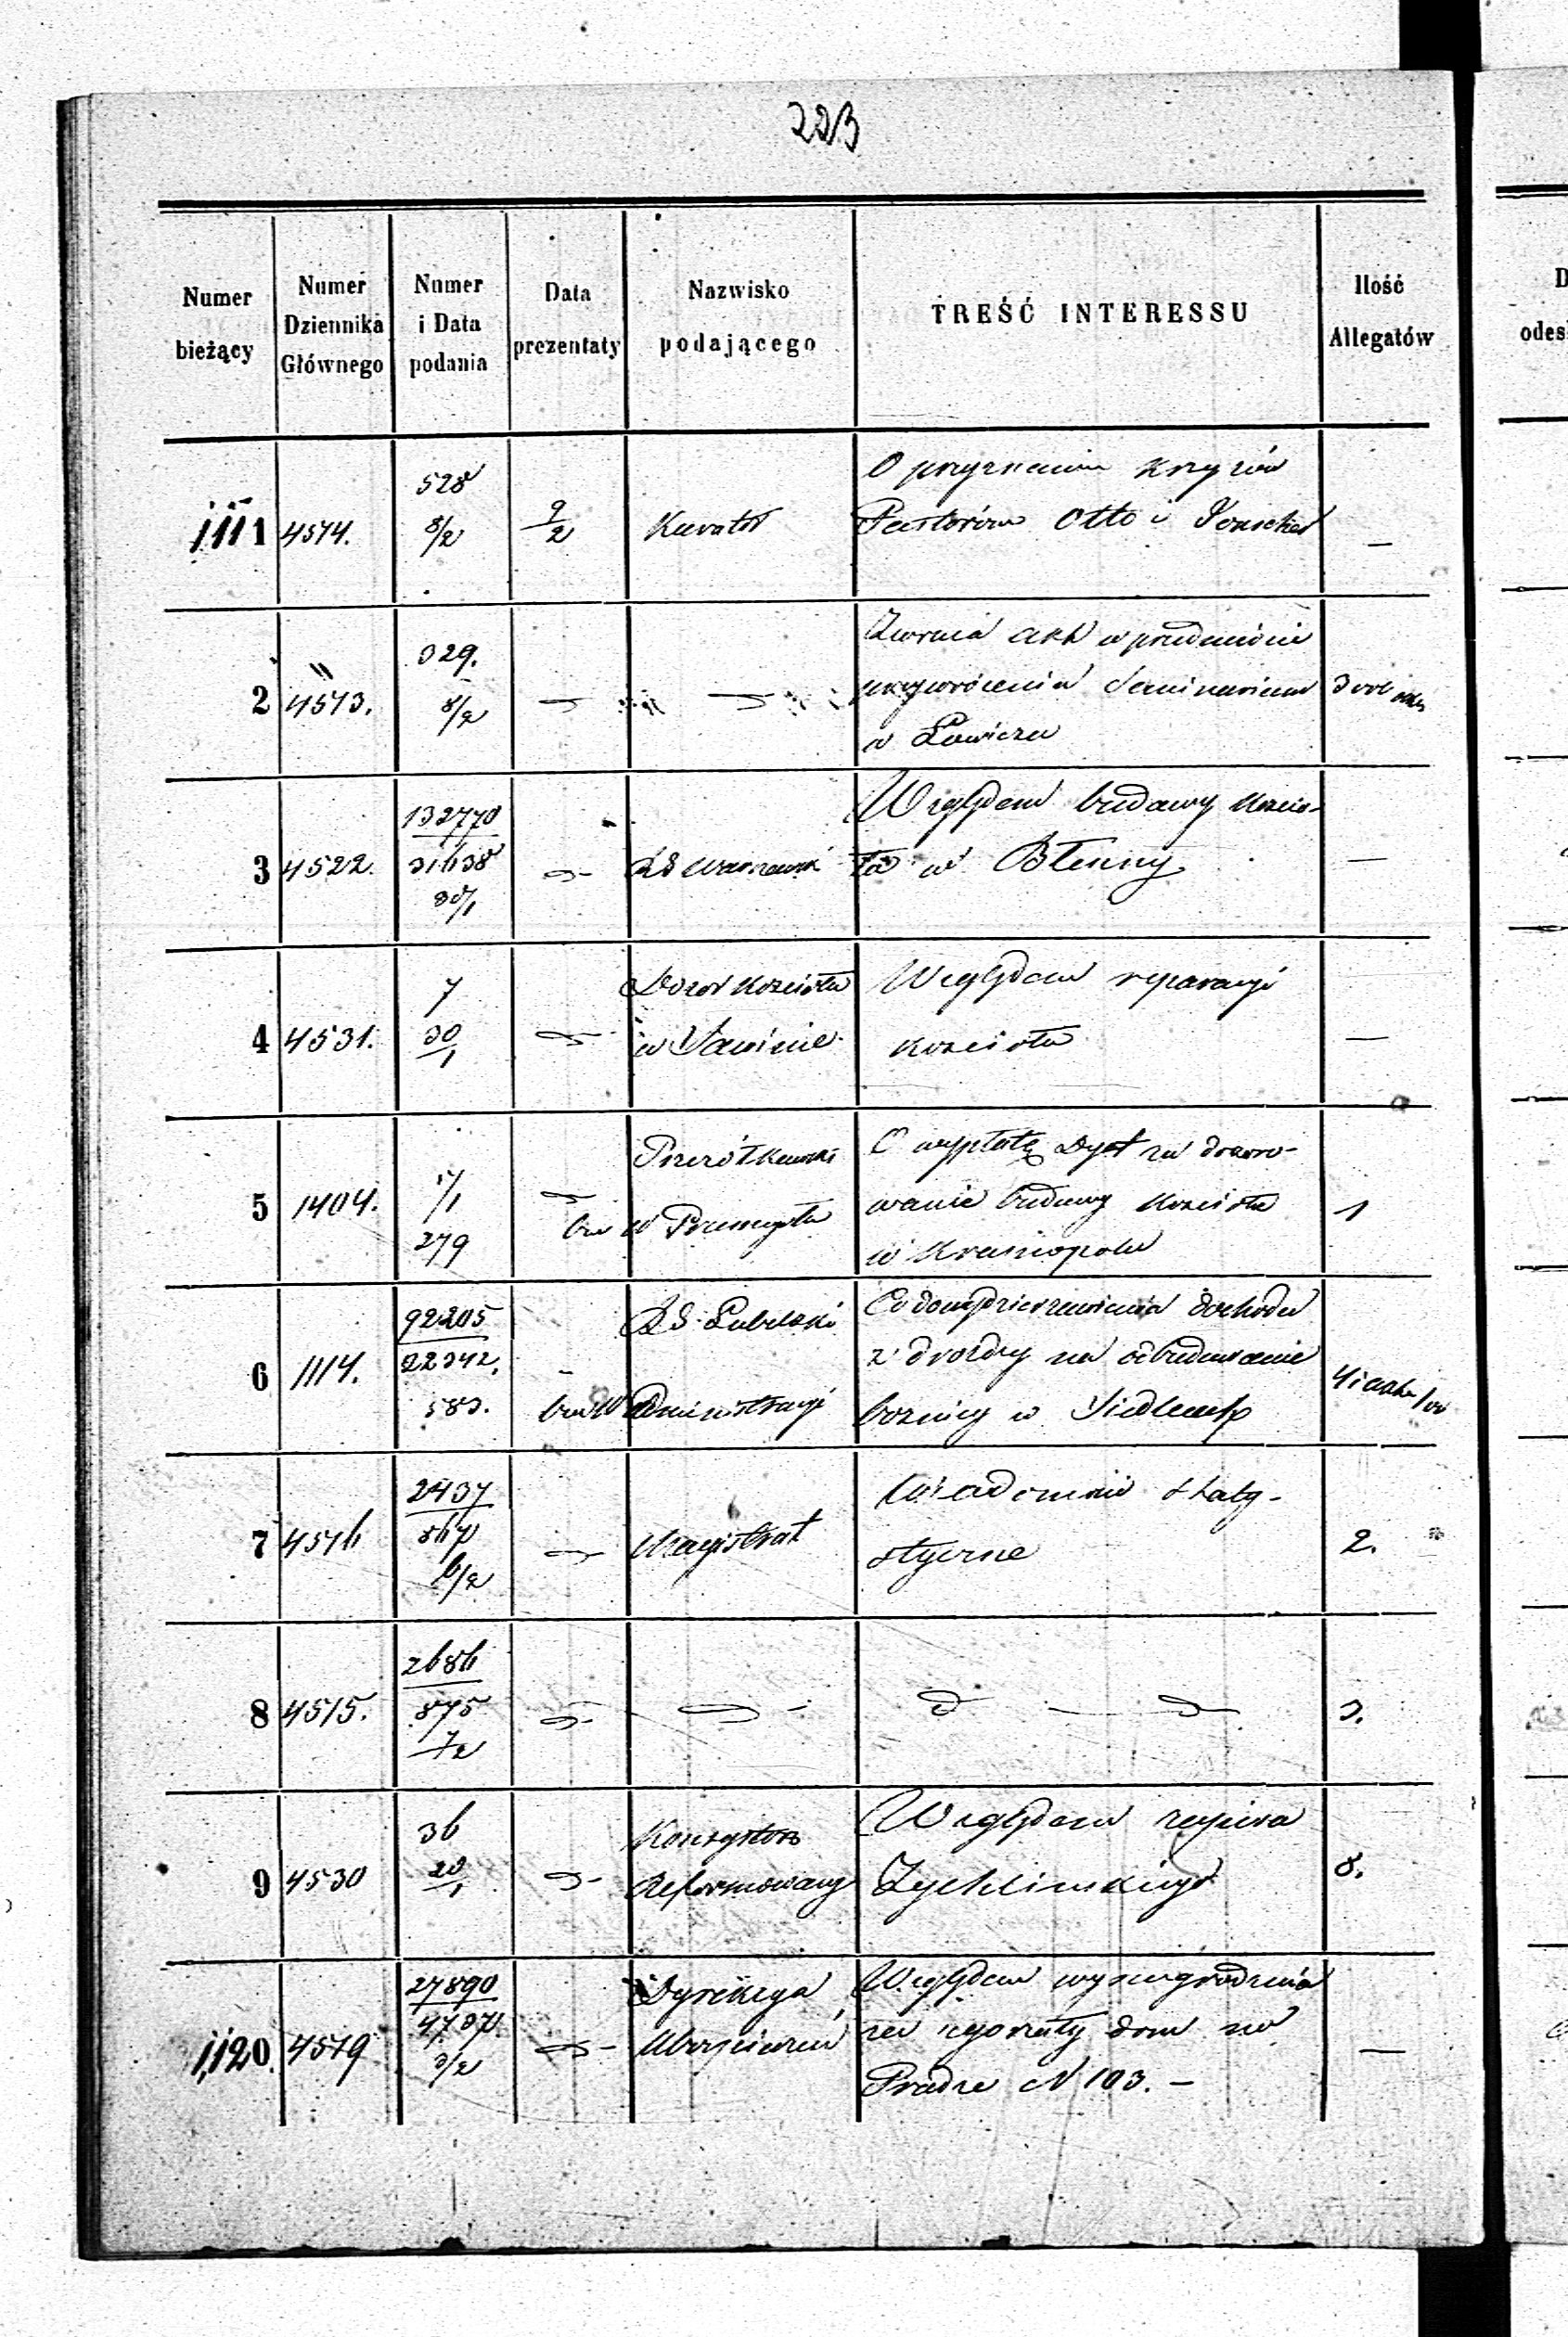 223
Numer bieżący
Numer Dziennika Głównego
Numer i Data podania
Data prezentaty
Nazwisko podającego
TREŚĆ INTERESSU
Ilość Allegatów
D
odes
1111 4514. 528 8/2 9/2 Kurator
O przyznaniu krzyżów
Pastorów Otto i —
2 4513. 329. 8/2
Zwraca akta w przedmiocie
przywrócenia Seminarium
w Łowiczu
3 4522. 132770 31638 30/1 Warszawski
Względem budowy kościo-
ła w Błenny —
4 4531. 7 30/1
Dozór kościoła
w Sawinie
Względem reparacyi
kościoła —
5 1404. 17/1 279
w Przemyślu
O wypłatę Dyet za dozoro-
wanie budowy kościoła
w Krasnopolu
1
6 1114. 92205 22342. 583.
Lubelski
Administracyi
dochodu
z drożdży na odbudowanie
bożnicy w
7 4516 2437 867 6/2 Magistrat
Wiadomości staty-
styczne
2.
8 4515. 2686 875 7/2
3.
9 4530 36 20/1
Konsystorz
Reformowany
Względem
Żychlińskiego
8.
1,120. 4519 27890 4737 3/2
Dyrekcya
Ubezpieczeń
Względem wynagrodzenia
za zgorzały dom na
Pradze N 103. — —